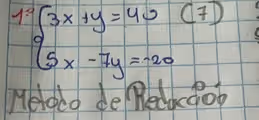 1º 3x + y = 40 (7)
5x - 7y = -20
Metodo de Reduccion